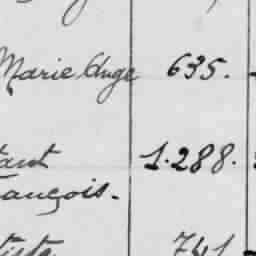 Marie Ange 635.
tant 1.288.
rançois.
tiste 741